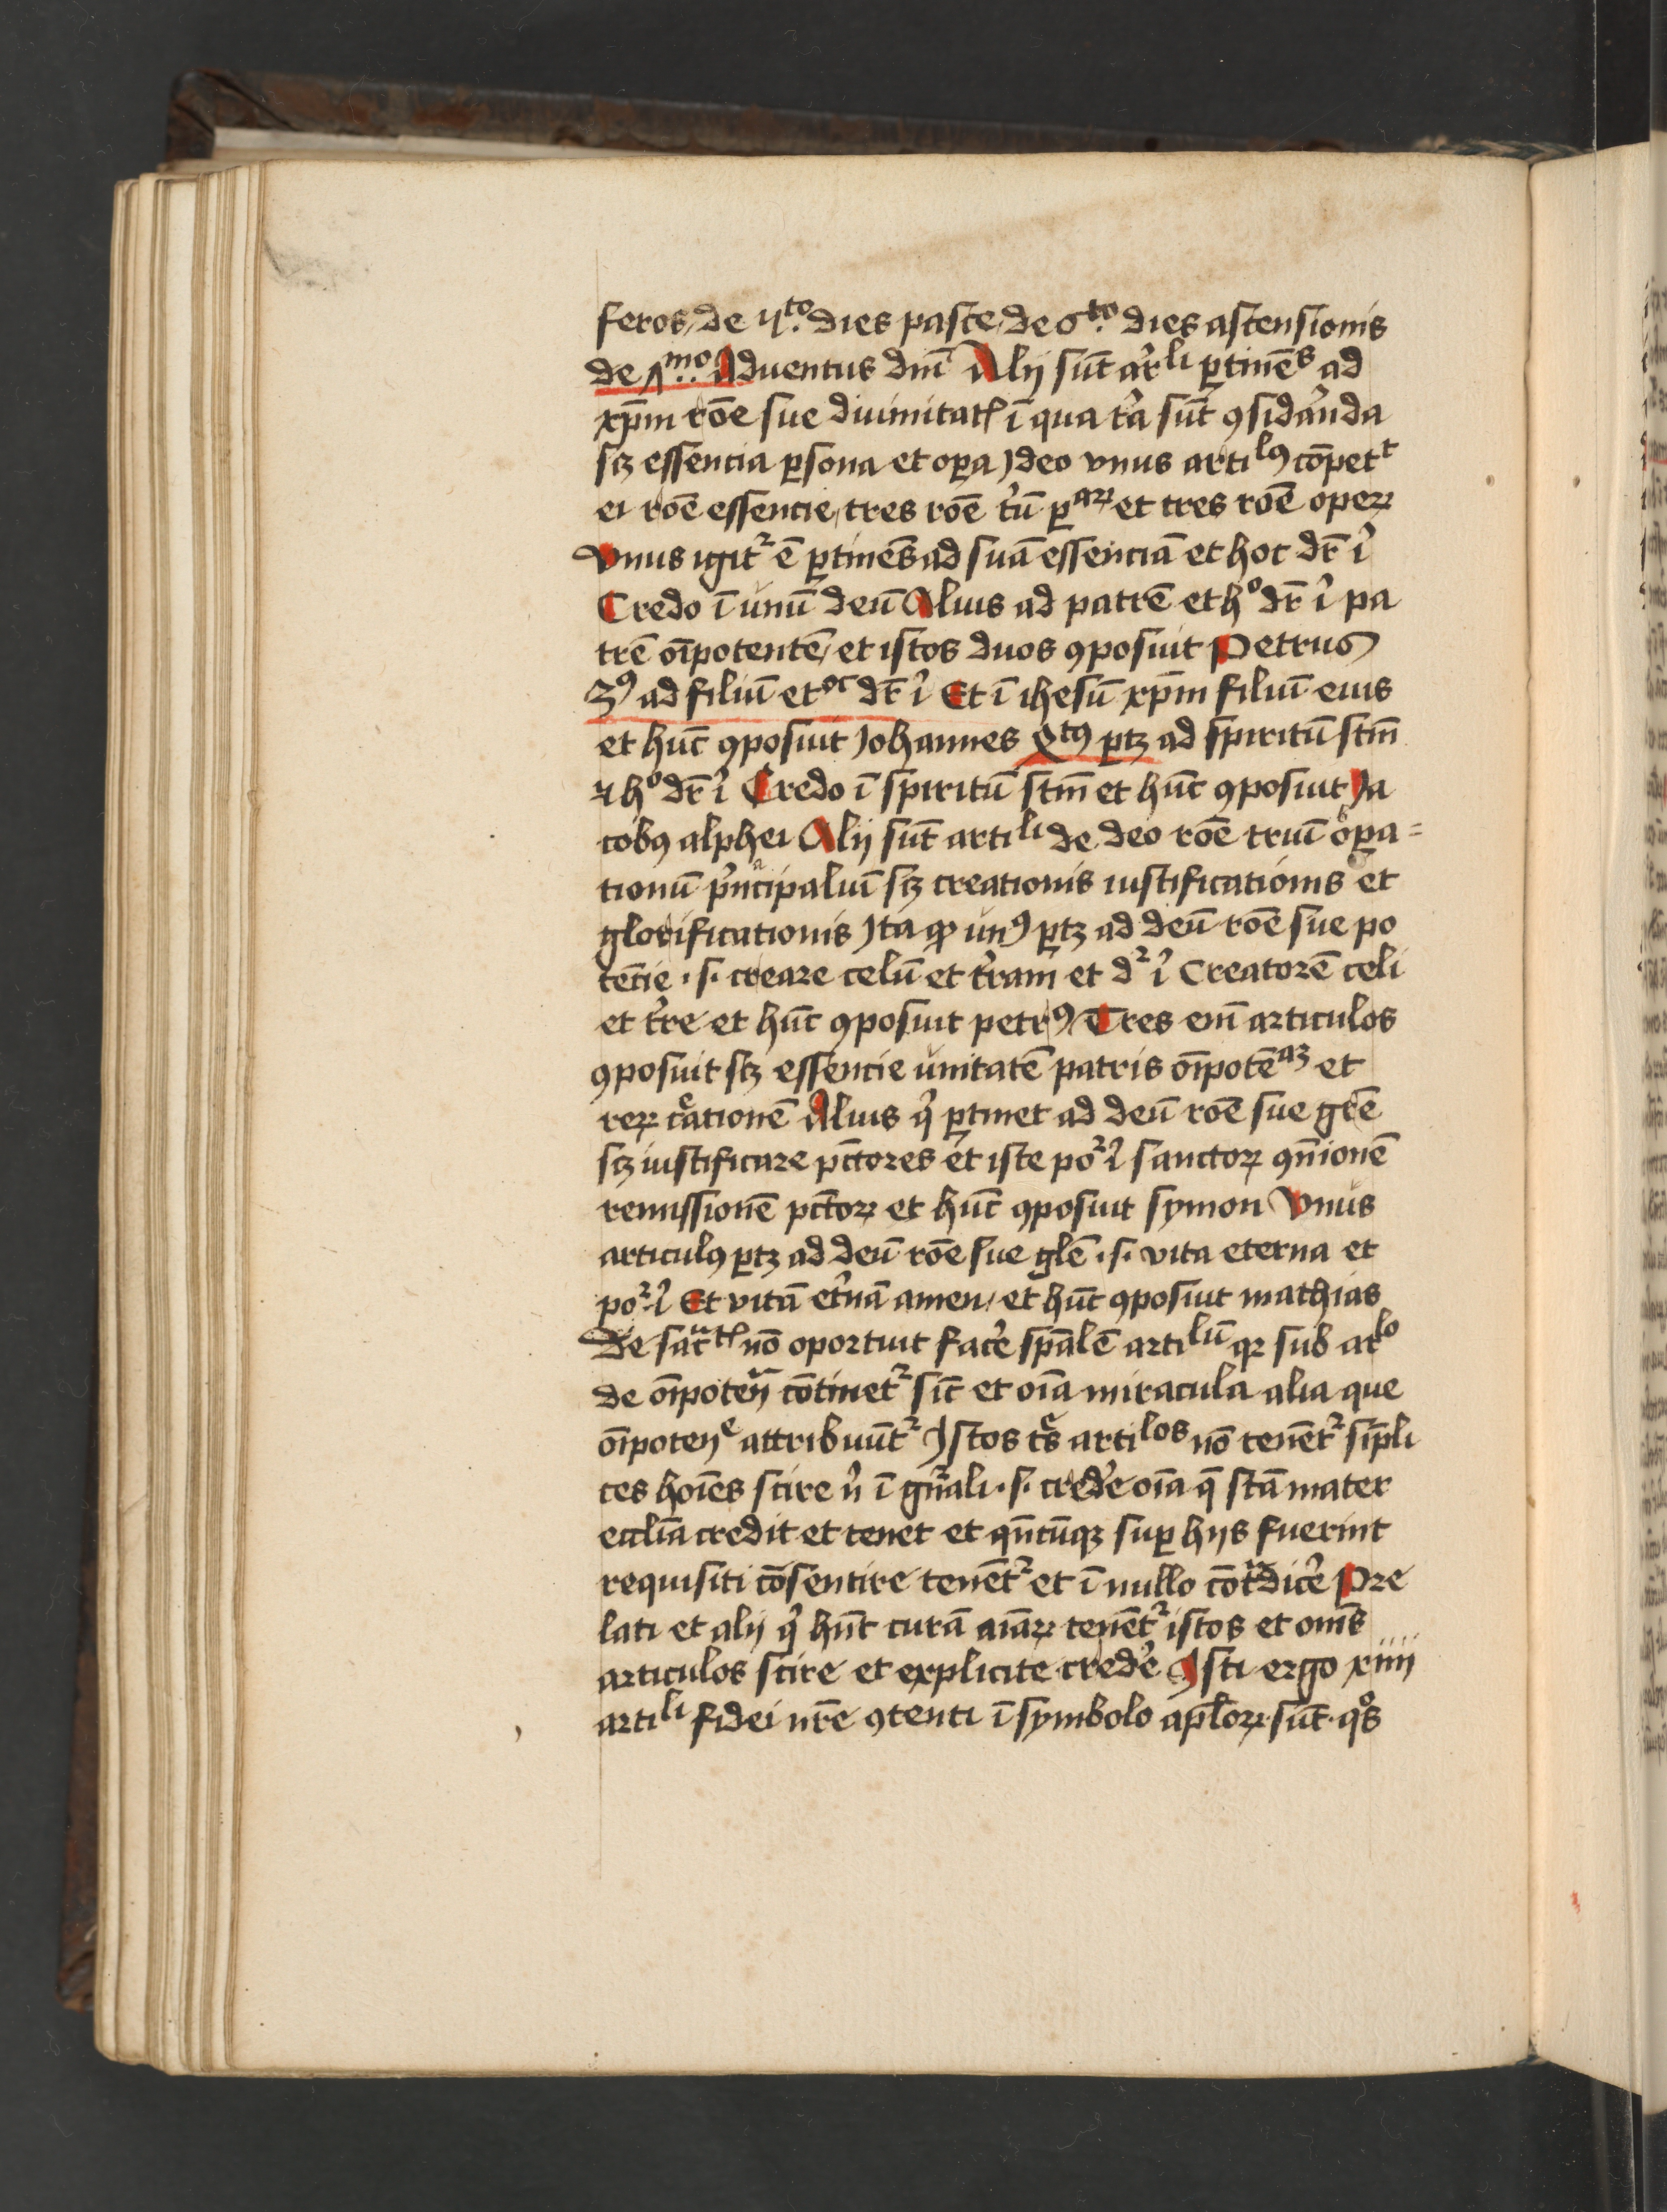 feros / de 4to· dies pasce / de 6to· dies ascensionis
de 7mo·· Aduentus dn̄i Alij sūt ar̄li ꝑtinēs ad
xp̄m rōe sue diuinitatꝭ ī qua tͥa sūt ꝯsidāͬnda
scꝫ essencia ꝑsona et oꝑa Ideo vnus artilꝰ cōpett
ei rōe essencie / tres rōe tͥū ꝑaꝝ et tres rōe opeꝝ
Vnus igit᷑ ē ꝑtinens ad suā essenciā et hoc dr̄ ī
Credo ī vnū deū Alius ad patrē et hͦ dr̄ ī pa
trē oīpotentē / et istos duos ꝯposuit Petrus
3ꝰ ad filiū et oc dr̄ ī Et ī ihesū xp̄m filiū eius
et hūc ꝯposuit Johannes Qtꝰ ꝑtꝫ ad spiritū stm̄
⁊ hͦ dr̄ ī Credo ī spiritū stm̄ et hūc ꝯposuit Ja
cobꝰ alphei Alij sūt artili de deo rōe triū oꝑa=
tionū pͥncipaliū scꝫ creationis iustificationis et
glorificationis Ita ꝙ vnꝰ ꝑtꝫ ad deū rōe sue po
tēcie · s· creare celū et tr̄ram et d᷑ ī Creatorē celi
et tr̄re et hūc ꝯposuit petrꝰ / Tres em̄ articulos
ꝯposuit scꝫ essencie vnitatē patris oīpotēaꝫ et
reꝝ cͤationē Alius qͥ ꝑtinet ad deū rōe sue grē
scꝫ iustificare pc̄tores et iste po᷑ ī sanctoꝝ ꝯn̄ionē
remissionē pc̄toꝝ et hūc ꝯposuit symon Vnus
articulꝰ ꝑtꝫ ad deū rōe sue glē · s· vita eterna et
po᷑ ī Et vitā et̄nā amen / et hūc ꝯposuit mathias
De sacͣtꝭ nō oportuit facē spālē artilū qꝛ sub arlo
de oīpotenͣ cōtinet᷑ sic̄ et oīa miracula alia que
oīpotenͤ attribuūt᷑ Istos tͤs artilos nō tenēt᷑ simpli
ces hoīes scire nͥ ī gn̄ali · s· credē oīa q̄ stā mater
ecclīa credit et tenet et qn̄cūqꝫ suꝑ hijs fuerint
requisiti cōsentire tenēt᷑ et ī nullo cōtͣdicē Pre
lati et alij qͥ hn̄t curā aīaꝝ tenēt᷑ istos et om̄s
articulos scire et explicite credē Isti ergo xiiij
artili fidei nr̄e ꝯtenti ī symbolo apl̄oꝝ sūt · qͦs